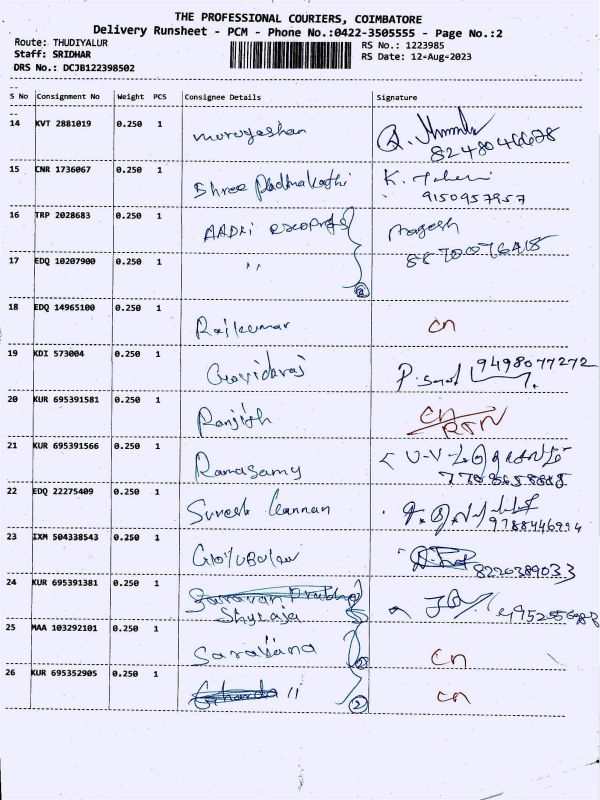 THE PROFESSIONAL COURIERS, COIMBATORE
Delivery Runsheet - PCM - Phone No.:0422-3505555 - Page No.:2
Route: THUDIYALUR RS No.: 1223985
Staff: SRIDHAR RS Date: 12-Aug-2023
DRS No.: DCJB122398502
S No Consignment No Weight PCS Consignee Details Signature
14 KVT 2881019 0.250 1 murugeshan
8248046678
15 CNR 1736067 0.250 1 Shree K.
9150957957
16 TRP 2028683 0.250 1 AADRI Nagesh
8870076418
17 EDQ 10207900 0.250 1 ,,
2
18 EDQ 14965100 0.250 1 Rajkumar CN
19 KDI 573004 0.250 1 Govidaraj 9498077272
20 KUR 695391581 0.250 1 Ranjith CN
RTN
21 KUR 695391566 0.250 1 Ramasamy
22 EDQ 22275409 0.250 1 Suresh Kannan
9788446994
23 IXM 504338543 0.250 1
8220389033
24 KUR 695391381 0.250 1 Saravan Prabhu
Shylaja
25 MAA 103292101 0.250 1 Saravana CN
26 KUR 695352905 0.250 1 11 CN
2